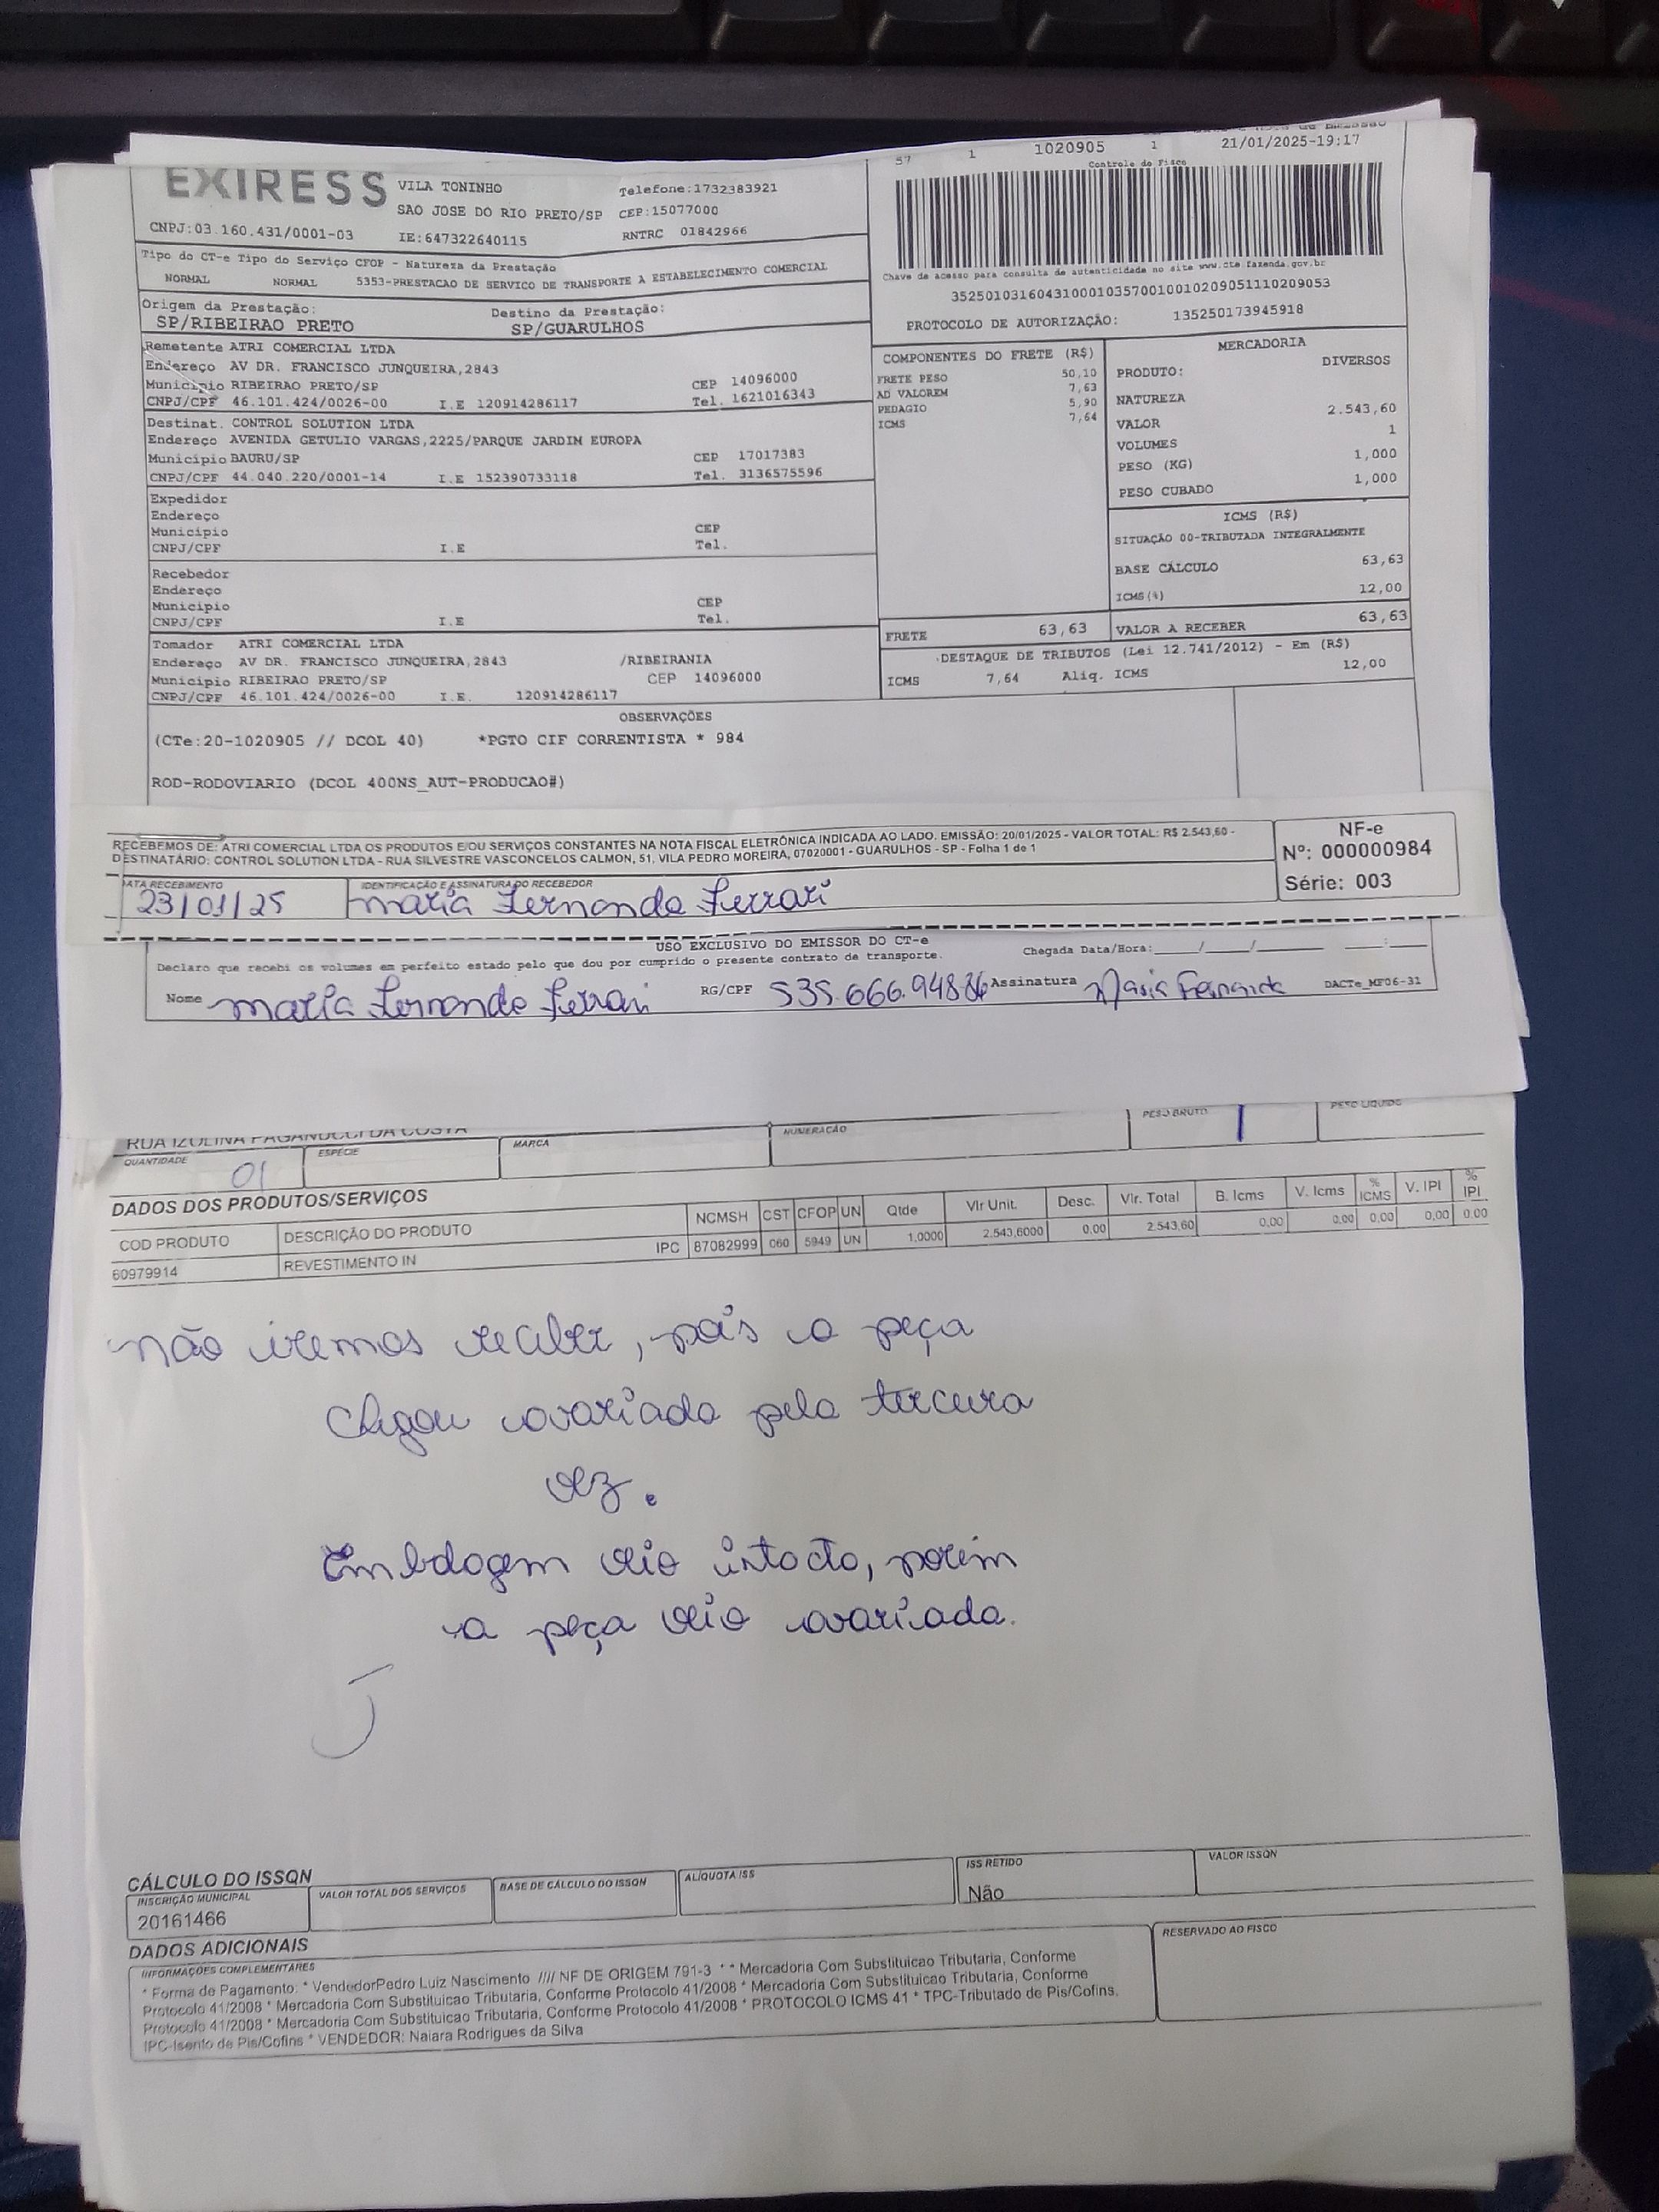 57 1 1020905 1 21/01/2025-19:17
Controle do Fisco
EXIRESS
VILA TONINHO Telefone:1732383921
SAO JOSE DO RIO PRETO/SP CEP:15077000
CNPJ:03.160.431/0001-03 IE:647322640115 RNTRC 01842966
Chave de acesso para consulta de autenticidade no site www.cte.fazenda.gov.br
35250103160431000103570010010209051110209053
PROTOCOLO DE AUTORIZAÇÃO: 135250173945918
Tipo do CT-e Tipo do Serviço CFOP - Natureza da Prestação
NORMAL NORMAL 5353-PRESTACAO DE SERVICO DE TRANSPORTE A ESTABELECIMENTO COMERCIAL
Origem da Prestação: Destino da Prestação:
SP/RIBEIRAO PRETO SP/GUARULHOS
Remetente ATRI COMERCIAL LTDA
Endereço AV DR. FRANCISCO JUNQUEIRA,2843
Município RIBEIRAO PRETO/SP CEP 14096000
CNPJ/CPF 46.101.424/0026-00 I.E 120914286117 Tel. 1621016343
Destinat. CONTROL SOLUTION LTDA
Endereço AVENIDA GETULIO VARGAS,2225/PARQUE JARDIM EUROPA
Município BAURU/SP CEP 17017383
CNPJ/CPF 44.040.220/0001-14 I.E 152390733118 Tel. 3136575596
Expedidor
Endereço
Município CEP
CNPJ/CPF I.E Tel.
Recebedor
Endereço
Município CEP
CNPJ/CPF I.E Tel.
Tomador ATRI COMERCIAL LTDA
Endereço AV DR. FRANCISCO JUNQUEIRA,2843 /RIBEIRANIA
Município RIBEIRAO PRETO/SP CEP 14096000
CNPJ/CPF 46.101.424/0026-00 I.E. 120914286117
COMPONENTES DO FRETE (R$)
FRETE PESO 50,10
AD VALOREM 7,63
PEDAGIO 5,90
ICMS 7,64
MERCADORIA
PRODUTO: DIVERSOS
NATUREZA
VALOR 2.543,60
VOLUMES 1
PESO (KG) 1,000
PESO CUBADO 1,000
ICMS (R$)
SITUAÇÃO 00-TRIBUTADA INTEGRALMENTE
BASE CÁLCULO 63,63
ICMS(%) 12,00
FRETE 63,63 VALOR A RECEBER 63,63
DESTAQUE DE TRIBUTOS (Lei 12.741/2012) - Em (R$)
ICMS 7,64 Aliq. ICMS 12,00
OBSERVAÇÕES
(CTe:20-1020905 // DCOL 40) *PGTO CIF CORRENTISTA * 984
ROD-RODOVIARIO (DCOL 400NS_AUT-PRODUCAO#)
RECEBEMOS DE: ATRI COMERCIAL LTDA OS PRODUTOS E/OU SERVIÇOS CONSTANTES NA NOTA FISCAL ELETRÔNICA INDICADA AO LADO. EMISSÃO: 20/01/2025 - VALOR TOTAL: R$ 2.543,60 -
DESTINATÁRIO: CONTROL SOLUTION LTDA - RUA SILVESTRE VASCONCELOS CALMON, 51, VILA PEDRO MOREIRA, 07020001 - GUARULHOS - SP - Folha 1 de 1
NF-e
Nº: 000000984
Série: 003
DATA RECEBIMENTO IDENTIFICAÇÃO E ASSINATURA DO RECEBEDOR
23/01/25 Maria Fernanda Ferrari
USO EXCLUSIVO DO EMISSOR DO CT-e Chegada Data/Hora:____/____/______ __:__
Declaro que recebi os volumes em perfeito estado pelo que dou por cumprido o presente contrato de transporte.
Nome Maria Fernanda Ferrari RG/CPF Assinatura Maria Fernanda DACTe_MF06-31
RUA IZOLINA PAGANUCCI DA COSTA
QUANTIDADE ESPÉCIE MARCA NUMERAÇÃO PESO BRUTO PESO LÍQUIDO
01 1
DADOS DOS PRODUTOS/SERVIÇOS
COD PRODUTO DESCRIÇÃO DO PRODUTO NCMSH CST CFOP UN Qtde Vlr Unit. Desc. Vlr. Total B. Icms V. Icms % ICMS V. IPI % IPI
60979914 REVESTIMENTO IN IPC 87082999 060 5949 UN 1,0000 2.543,6000 0,00 2.543,60 0,00 0,00 0,00 0,00 0,00
não iremos receber, pois a peça
chegou avariada pela terceira
vez.
Embalagem veio intacta, porém
a peça veio avariada.
CÁLCULO DO ISSQN
INSCRIÇÃO MUNICIPAL VALOR TOTAL DOS SERVIÇOS BASE DE CÁLCULO DO ISSQN ALÍQUOTA ISS ISS RETIDO VALOR ISSQN
20161466 Não
DADOS ADICIONAIS
INFORMAÇÕES COMPLEMENTARES RESERVADO AO FISCO
* Forma de Pagamento: * VendedorPedro Luiz Nascimento //// NF DE ORIGEM 791-3 * * Mercadoria Com Substituicao Tributaria, Conforme
Protocolo 41/2008 * Mercadoria Com Substituicao Tributaria, Conforme Protocolo 41/2008 * Mercadoria Com Substituicao Tributaria, Conforme
Protocolo 41/2008 * Mercadoria Com Substituicao Tributaria, Conforme Protocolo 41/2008 * PROTOCOLO ICMS 41 * TPC-Tributado de Pis/Cofins.
IPC-Isento de Pis/Cofins * VENDEDOR: Naiara Rodrigues da Silva